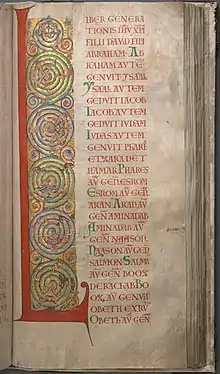 L
IBER GENERA
TIONIS IHV XPI
FILII DAVID FILII
ABRAHAM. AB
RAHAM AUTE
GENUIT YSAAC
YSAAC AUTEM
GENUIT IACOB
IACOB AUTEM
GENUIT IUDAM
IUDAS AUTEM
GENUIT PHARE
ET ZARA DE T
HAMAR PHARES
AU GEN ESROM
ESROM AU GEN
ARAN ARAN AU
GEN AMINADAB
AMINADAB AU
GEN NAASON
NAASON AU GEN
SALMON SALMŌ
AU GEN BOOZ
DE RACHAB BO
OZ AU GENUIT
OBETH EX RU
OBETH AU GEN